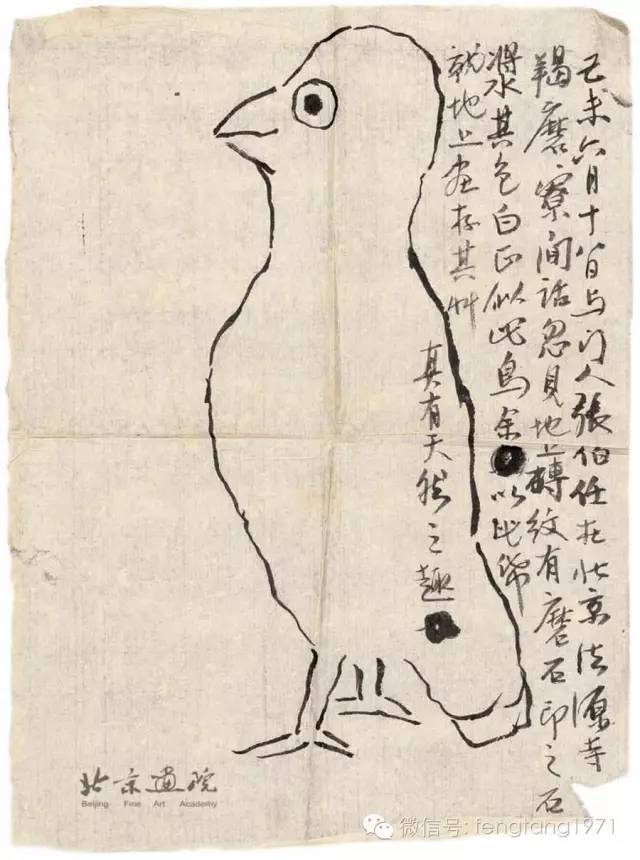 己未六月十八日与門人張伯任在北京法源寺
羯磨寮閒話忽見地上磚紋有磨石印之石
漿水其色白正似此鳥余以此帋
就地上畫存其艸
真有天然之趣
北京畫院
Beijing Fine Art Academy
微信号: fengtang1971